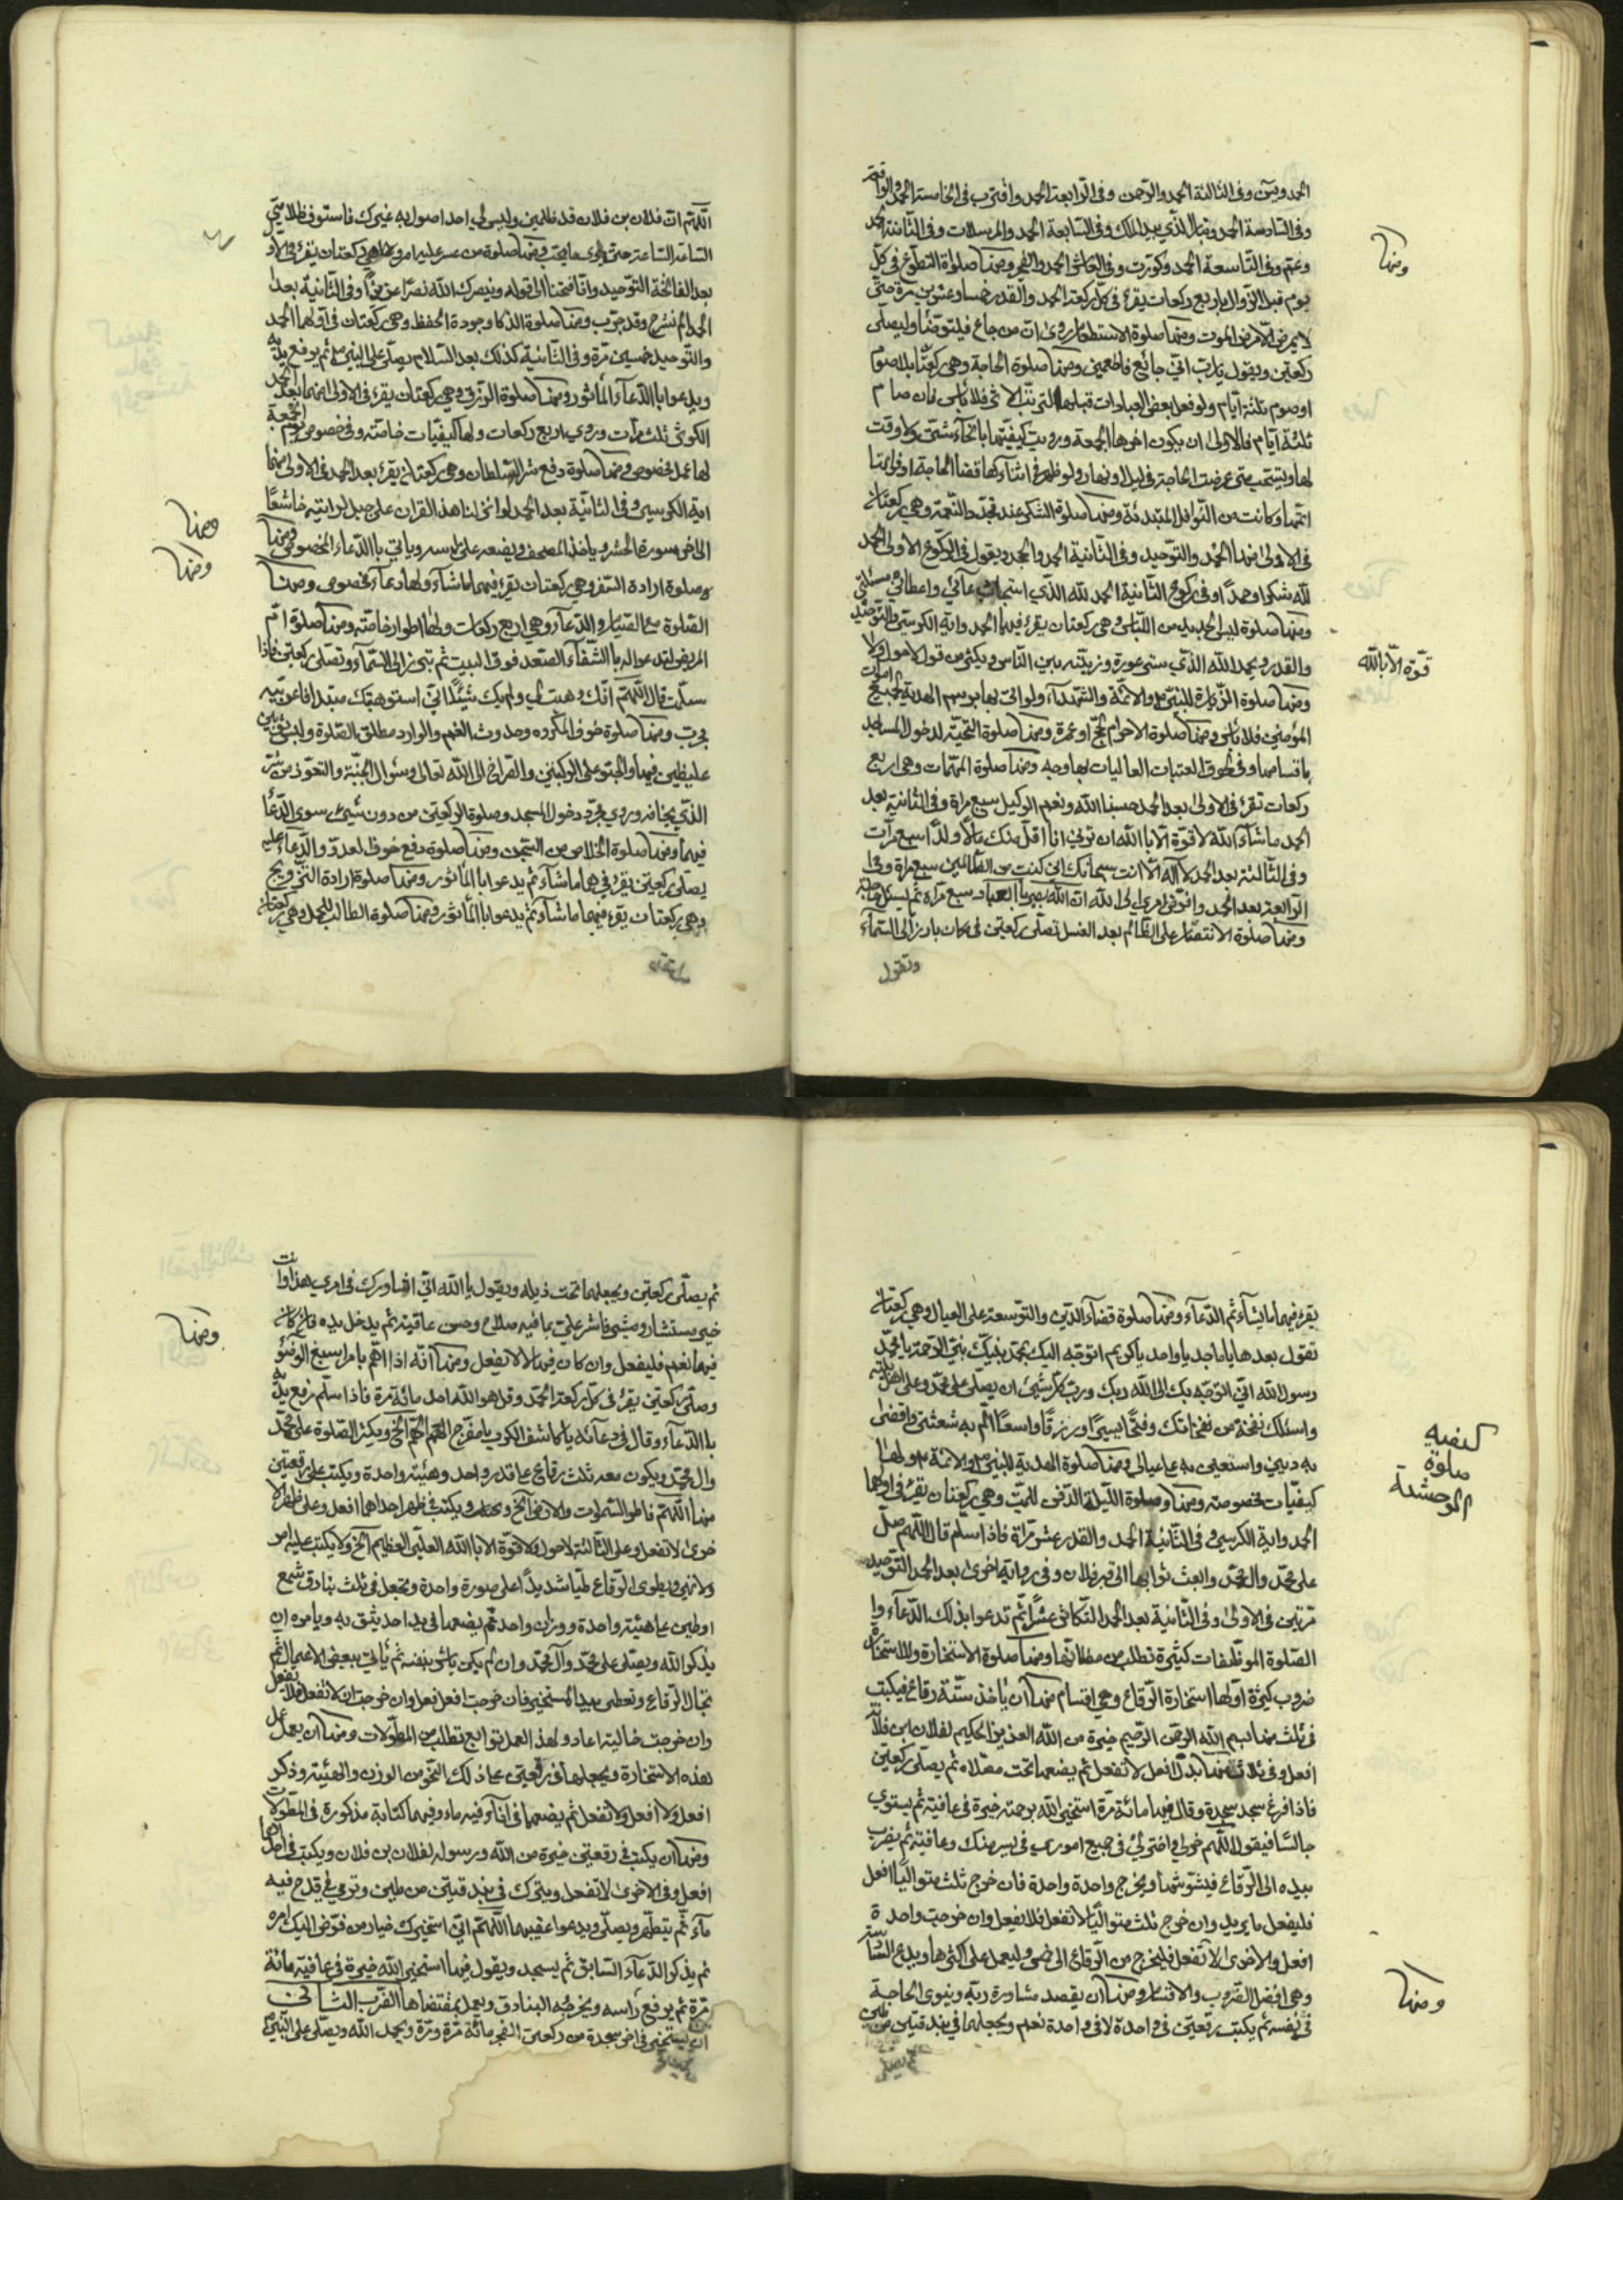 الحمد ويس وفى الثالثة الحمد والرحمن وفى الرابعة الحمد واقترب فى الخامسة الحمد والواقعة
وفى السادسة الحمد وتبارك الذي بيده الملك وفى السابعة الحمد والمرسلات وفى الثامنة الحمد
وعم وفى التاسعة الحمد وكورت وفى العاشرة الحمد والفجر ومنها صلواة التطوع فى كل
يوم قبل الزوال اربع ركعات يقرء فى كل ركعة الحمد والقدر خمسا وعشرين مرة حتى
لا يمرض الا مرض الموت ومنها صلوة الاستطعام روى ان من جاع فليتوضأ وليصلى
ركعتين ويقول يا رب انى جائع فاطعمنى ومنها صلوة الحاجة وهى ركعتان بلا صوم
او صوم ثلثة ايام ولو فعل بعض العبادات قبلها فلا باس فان صام
ثلثة ايام فالاولى ان يكون اخرها الجمعة ورويت كيفيتها بانحاء شتى ولا وقت
لها ويستحب متى عرضت الحاجة فى ليل او نهار ولو ظهر فى اثنائها قضا الحاجة او فواتها
اتمها وكانت من النوافل المبتدئة ومنها صلوة الشكر عند تجدد النعمة وهى ركعتان
فى الاولى منها الحمد والتوحيد وفى الثانية الحمد والجحد ويقول فى الركوع الاولى الحمد
لله شكرا وحمدًا وفى ركوع الثانية الحمد لله الذي استجاب دعائى واعطانى مسئلتى
ومنها صلوة لبس الجديد من اللباس وهى ركعتان يقرء فيهما الحمد واية الكرسى والتوحيد
والقدر ويحمد الله الذي ستر عورته وزينته بين الناس ويكثر من قول لا حول ولا
ومنها صلوة الزيارة للنبى والائمة والشهداء ولو اتى بها بوسم الهدية لجميع اموات
المؤمنين فلا باس ومنها صلوة الاحرام لحج او عمرة ومنها صلوة التحية لدخول المساجد
باقسامها وفى لحوق العتبات العاليات بها وجه ومنها صلوة المهمات وهى اربع
ركعات تقرء فى الاولى بعد الحمد حسبنا الله ونعم الوكيل سبع مراة وفى الثانية بعد
الحمد ما شاء الله لا قوة الا بالله ان ترنى انا اقل منك مالًا وولدًا سبع مرآت
وفى الثالثة بعد الحمد لا اله الا انت سبحانك انى كنت من الظالمين سبع مراة وفى
الرابعة بعد الحمد وافوض امرى الى الله ان الله بصير بالعباد سبع مراة ثم يسئل حاجته
ومنها صلوة الانتصار على الظالم بعد الغسل تصلى ركعتين فى مكان بارز الى السماء
وتقول
ومنها
قوة الا بالله
اللهم ان فلان بن فلان قد ظلمنى وليس لي احد اصول به غيرك فاستوف ظلامتي
الساعة الساعة حتى ترى ما يحب ومنها صلوة من عسر عليه امر وهى ركعتان يقرء فى الاولى
بعد الفاتحة التوحيد وانا فتحنا الى قوله وينصرك الله نصرًا عزيزًا وفى الثانية بعد
الحمد الم نشرح وقد جرب ومنها صلوة الذكا وجودة الحفظ وهى ركعتان فى اولهما الحمد
والتوحيد خمسين مرة وفى الثانية كذلك بعد السلام يصلى على النبى ثم يرفع يديه
ويدعوا بالدعاء المأثور ومنها صلوة الرزق وهى ركعتان يقرء فى الاولى منهما بعد الحمد
الكوثر ثلث مرآت وروي اربع ركعات ولها كيفيات خاصة وفى خصوص يوم الجمعة
لها عمل مخصوص ومنها صلوة دفع شر السلطان وهى ركعتان يقرء بعد الحمد فى الاولى منها
اية الكرسي وفى الثانية بعد الحمد لو انزلنا هذا القران على جبل لرايته خاشعًا
الى اخر سورة الحشر وياخذ المصحف ويضعه على راسه وياتي بالدعاء المخصوص ومنها
صلوة ارادة السفر وهى ركعتان يقرء فيهما ما شآء ولها دعآء مخصوص ومنها
الصلوة مع الصيام والدعآء وهى اربع ركعات ولها اطوار خاصة ومنها صلوة ام
المريض تدعوا له بالشفاء الصعد فوق البيت ثم تبرز الى السماء وتصلى ركعتين فاذا
سلمت قال اللهم انك وهبته لي ولم يك شيئًا انى استوهبتك مبتدا فاعرنيه
جرب ومنها صلوة خوف المكروه وحدوث الغم والوارد مطلق الصلوة ولبس ثوبين
غليظين فيها والجثو على الركبتين والتضرع الى الله تعالى وسئوال الجنة والتعوذ من شر
الذي يخافه وروي مجرد دخول المسجد وصلوة الركعتين من دون شيئ سوى الدعا
فيها ومنها صلوة الخلاص من السجن ومنها صلوة دفع خوف العدو والدعاء عليه
يصلى ركعتين يقرء فيهما ما شآء ثم يدعوا بالمأثور ومنها صلوة ارادة التزويج
وهى ركعتان يقرء فيهما ما شآء ثم يدعوا بالمأثور ومنها صلوة الطالب للحمل وهى ركعتان
ومنها
ومنها
يقرء فيهما ما يشآء ثم الدعآء ومنها صلوة قضآء الدين والتوسعة على العيال وهى ركعتان
تقول بعدها يا ماجد يا واحد يا كريم اتوجه اليك بمحمد نبيك نبى الرحمة يا محمد
رسول الله انى اتوجه بك الى الله ربك ورب كل شيئ ان يصلى على محمد وعلى اهل بيته
واسئلك نفخة من نفخاتك وفتحًا يسيرًا ورزقًا واسعًا الم به شعثى واقضى
به دينى واستعين به على عيالى ومنها صلوة الهدية للنبى والائمة ولها
كيفيات مخصوصة ومنها صلوة الليلة الدفن للميت وهى ركعتان يقرء فى اولهما
الحمد واية الكرسى وفى الثانية الحمد والقدر عشر مراة فاذا سلم قال اللهم صل
على محمد وال محمد وابعث ثوابها الى قبر فلان وفى رواية اخرى بعد الحمد التوحيد
مرتين فى الاولى وفى الثانية بعد الحمد التكاثر عشرًا ثم تدعوا بذلك الدعآء
الصلوة الموظفات كثيرة تطلب من مظانها ومنها صلوة الاستخارة وللاستخارة
ضروب كثيرة اولها استخارة الرقاع وهى اقسام منها ان ياخذ ستة رقاع فيكتب
فى ثلث منها بسم الله الرحمن الرحيم خيرة من الله العزيز الحكيم لفلان ابن فلان
افعل وفى ثلاث منها بدل افعل لا تفعل ثم يضعها تحت مصلاه ثم يصلى ركعتين
فاذا فرغ سجد سجدة وقال فيها مائة مرة استخير الله برحمته خيرة فى عافية ثم يستوي
جالسًا فيقول اللهم خرلى واخترلى فى جميع امورى فى يسر منك وعافية ثم يضرب
بيده الى الرقاع فيشوشها ويخرج واحدة واحدة فان خرج ثلث متواليًا افعل
فليفعل ما يريد وان خرج ثلث متواليًا لا تفعل فلا يفعل وان خرجت واحدة
افعل والاخرى لا تفعل فليخرج من الرقاع الى خمس وليعمل على اكثرها ويدع السادسة
وهى افضل الضروب والاقسام ومنها ان يقصد مشاورة ربه وينوى الحاجة
فى نفسه ثم يكتب رقعتين فى واحدة لا وفى واحدة نعم ويجعلهما فى بندقتين من طين
ثم يصلى
كيفيه
صلوة
الوحشة
ومنها
ثم يصلى ركعتين ويجعلهما تحت ذيله ويقول يا الله انى اشاورك فى امري هذا وانت
خير مستشار ومشير فاشر على بما فيه صلاح وحسن عاقبة ثم يدخل يده فان كان
فيها نعم فليفعل وان كان فيها لا لا تفعل ومنها انه اذا اهم بامر اسبغ الوضوء
وصلى ركعتين يقرء فى كل ركعة الحمد وقل هو الله احد مائة مرة فاذا سلم رفع يديه
بالدعآء وقال فى دعآئه يا كاشف الكرب يا مفرج الهم الخ ويكثر الصلوة على محمد
وال محمد ويكون معه ثلث رقاع على قدر واحد وهيئة واحدة ويكتب على رقعتين
منها اللهم فاطر السموات والارض الخ ويكتب فى ظهر احداهما افعل وعلى ظهر الا
خرى لا تفعل وعلى الثالثة لا حول ولا قوة الا بالله العلى العظيم الخ ولا يكتب عليه امر
ولا نهى ويطوى الرقاع طيا شديدًا على صورة واحدة ويجعل فى ثلث بنادق شمع
او طين على هيئة واحدة ووزن واحد ثم يضعها فى يد احد يثق به ويامره ان
يذكر الله ويصلى على محمد وآل محمد وان لم يكن باشر بنفسه ثم ياتى ببعض الاعمال ثم
تجال الرقاع وتعطى بيد المستخير فان خرجت افعل فعل وان خرجت لا تفعل فلا يفعل
وان خرجت خالية اعاد ولهذا العمل توابع تطلب من المطولات ومنها ان يعمل عمل
هذه الاستخارة ويجعلها فى رقعتين على ذلك النحو من الوزن والهيئة وذكر
افعل ولا تفعل ثم يضعهما فى انآء فيه ماء وفيهما كتابة مذكورة فى المطولات
ومنها ان يكتب فى رقعتين خيرة من الله ورسوله لفلان بن فلان ويكتب فى احدهما
افعل وفى الاخرى لا تفعل ويترك فى بندقتين من طين وترمي فى قدح فيه
مآء ثم يتطهر ويصلى ويدعوا عقيبهما اللهم انى استخيرك خيار من فوض اليك امره
ثم يذكر الدعآء السابق ثم يسجد ويقول فيها استخير الله خيرة فى عافية مائة
مرة ثم يرفع راسه ويخرج البنادق ويعمل بمقتضاها الضرب الثانى
ان يستخير فى اخر سجدة من ركعتى الفجر مائة مرة ومرة ويحمد الله ويصلى على النبى
ومنها